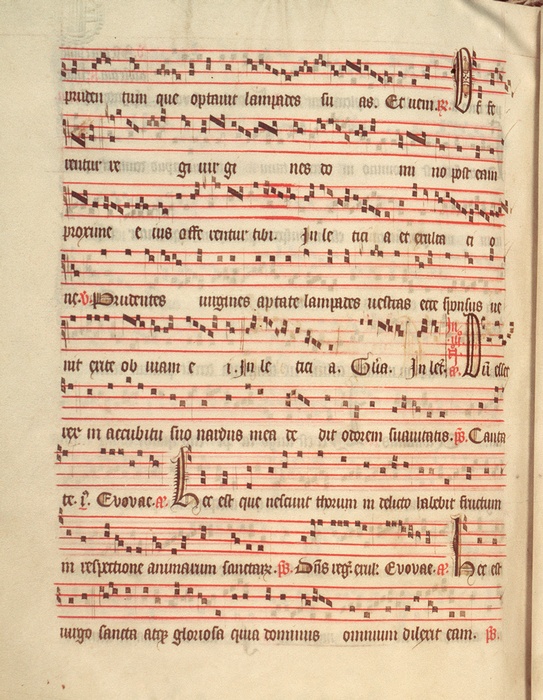 pruden tium que optauit lampades su as. Et ueni. R. O ffe
rentur re gi uir gi nes do mi no post eam
proxime e ius offe rentur tibi. In le tici a et exulta ci o
ne. V. Prudentes uirgines aptate lampades uestras ecce sponsus ue
nit exite ob uiam e i. In le tici a. Gl'ia. In let. Dū esset
rex in accubitu suo nardus mea de dit odorem suauitatis. ps. Canta
te. i. Evovae. a. Hec est que nesciuit thorum in delicto habebit fructum
in respectione animarum sanctarum. ps. Dn̄s reg. exul. Evovae. a. Hec est
uirgo sancta atque gloriosa quia dominus omnium dilexit eam. ps.